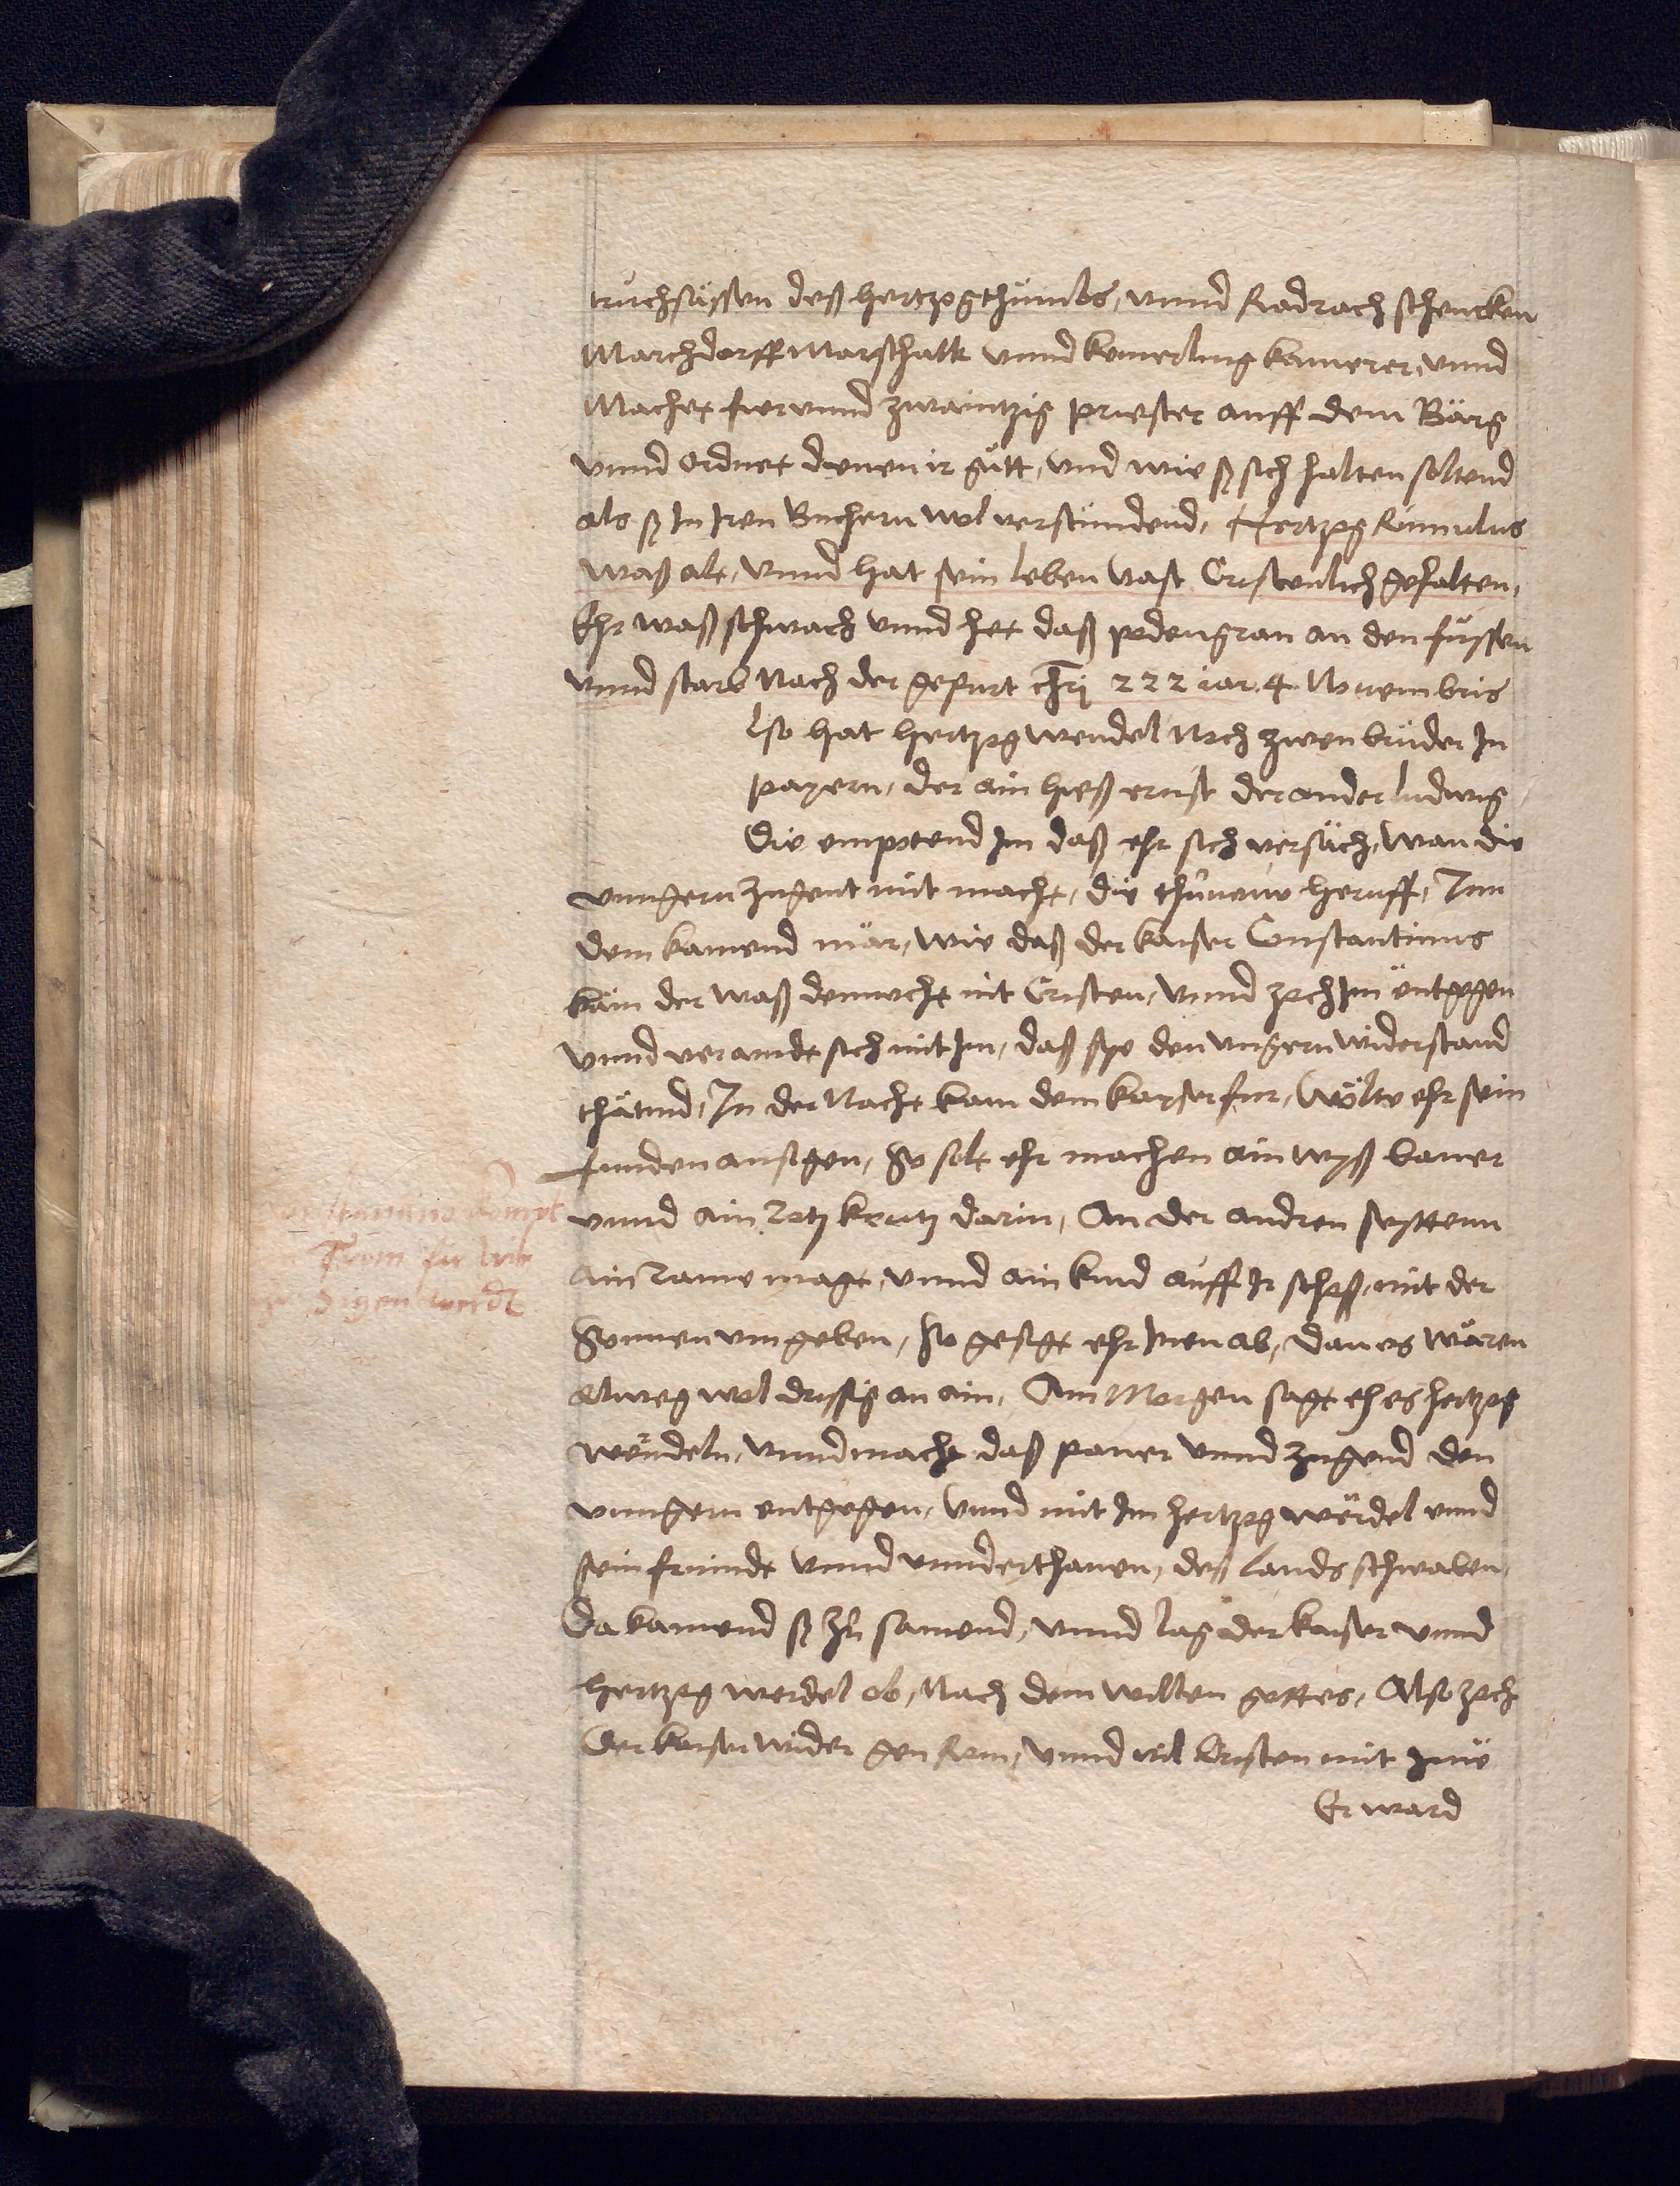 truchsässen deß hertzogthumbs, vnnd Radrach schencken
Marchdorff Marschalk vnnd kemerling kamerer, vnnd
Machet fier vnnd zwaintzig priester auff dem Bärg
vnnd ordnet denen ir gůtt, vnd wie sy sich halten soltend
als sy In Iren Buchern wol verstündend, Hertzog Romulus
waß alt, vnnd hat sein leben vast Cristenlich gehalten,
Ehr waß schwach vnnd het daß podengran an den füssen
vnnd starb Nach der gepurt Chrj 222 iar 4 Nouembris
lso hat hertzog wendel Noch zwen brüder In
payern, der ain hieß ernst der ander ludwig
Die empotend Im daß ehr sich versäch, wan die
vnngern zugent mit macht, die thůnaw heruff, Inn
dem kamend mär, wie daß der kaiser Constantinus
käm der waß dennocht nit Cristen, vnnd zoch Im entgegen
vnnd veraindt sich mit Im, daß sye den vngern widerstand
thätind, In der Nacht kam dem kayser fur, wölte ehr sein
feinden ansigen, So solt ehr machen ain wyß baner
vnnd ain rotz kreutz darin, An der andren seyttenn
ain raine magt, vnnd ain kind auff Ir schoß, mit der
Sonnen vmgeben, So gesigt ehr Inen ab, dan es wären
alweg wol drissig an ain, Am Morgen sagt ehs hertzog
wendeln, vnnd macht daß paner vnnd zugend den
vnngern entgegen, vnnd mit Im hertzog werdel vnnd
sein freindt vnnd vnnderthanen, deß lands schwaben,
Da kamend sy zů samend, vnnd lag der kaiser vnnd
hertzog werdel ob, Nach dem willen gottes, Also zoch
Der kaiser wider gen Rom, vnnd vil Cristen mit Ime
Er ward
kompt